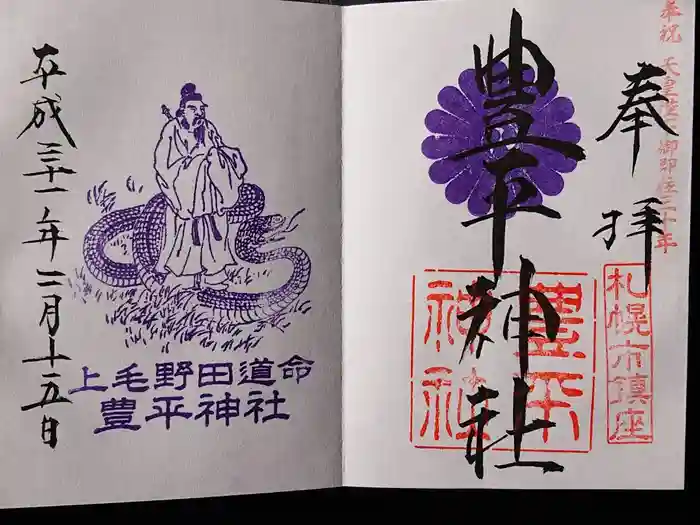 奉祝 天皇陛下御即位三十年
奉拝
札幌市鎮座
豊平神社
豊平神社
平成三十一年二月十五日
上毛野田道命
豊平神社